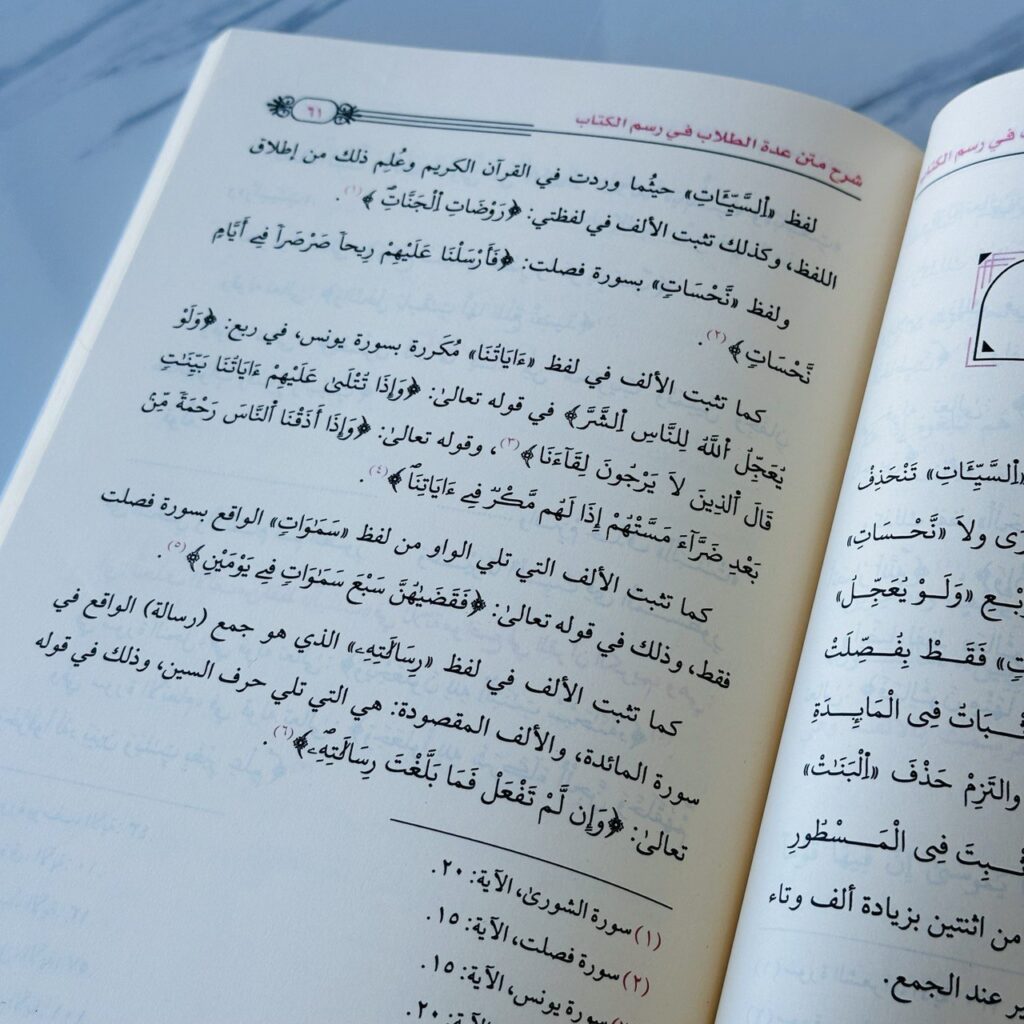 شرح متن عدة الطلاب في رسم الكتاب
٦١
لفظ «اِلسَّيِّـَٔاتِ» حيثُما وردت في القرآن الكريم وعُلِم ذلك من إطلاق
اللفظ، وكذلك تثبت الألف في لفظتي: ﴿رَوْضَاتِ اِلْجَنَّاتِۖ﴾(١).
ولفظ «نَّحْسَاتٍ» بسورة فصلت: ﴿فَأَرْسَلْنَا عَلَيْهِمْ رِيحاً صَرْصَراً فِے أَيَّامٍ
نَّحْسَاتٍ﴾(٢).
كما تثبت الألف في لفظ «ءَايَاتُنَا» مُكَررة بسورة يونس، في ربع: ﴿وَلَوْ
يُعَجِّلُ اُللَّهُ لِلنَّاسِ اِلشَّرَّ﴾ في قوله تعالىٰ: ﴿وَإِذَا تُتْلَىٰ عَلَيْهِمْ ءَايَاتُنَا بَيِّنَٰتٍ
قَالَ اَلذِينَ لَا يَرْجُونَ لِقَآءَنَا﴾(٣)، وقوله تعالىٰ: ﴿وَإِذَا أَذَقْنَا اَلنَّاسَ رَحْمَةً مِّنۢ
بَعْدِ ضَرَّآءَ مَسَّتْهُمْ إِذَا لَهُم مَّكْرٌ فِے ءَايَاتِنَاۖ﴾(٤).
كما تثبت الألف التي تلي الواو من لفظ «سَمَٰوَاتٍ» الواقع بسورة فصلت
فقط، وذلك في قوله تعالىٰ: ﴿فَقَضَيٰهُنَّ سَبْعَ سَمَٰوَاتٍ فِے يَوْمَيْنِ﴾(٥).
كما تثبت الألف في لفظ «رِسَالَٰتِهِۦ» الذي هو جمع (رسالة) الواقع في
سورة المائدة، والألف المقصودة: هي التي تلي حرف السين، وذلك في قوله
تعالىٰ: ﴿وَإِن لَّمْ تَفْعَلْ فَمَا بَلَّغْتَ رِسَالَٰتِهِۦۖ﴾(٦).
(١) سورة الشورىٰ، الآية: ٢٠.
(٢) سورة فصلت، الآية: ١٥.
سورة يونس، الآية: ١٥.
الآية: ٢٠.
في رسم الكتاب
«اِلسَّيِّـَٔاتِ» تَنْحَذِفُ
ولاَ «نَّحْسَاتٍ»
«وَلَوْ يُعَجِّلُ»
فَقَطْ بِفُصِّلَتْ
فِى الْمَايِدَةِ
والتَزِمْ حَذْفَ «اِلْبَنَٰتْ»
فِى الْمَسْطُورِ
من اثنتين بزيادة ألف وتاء
عند الجمع.